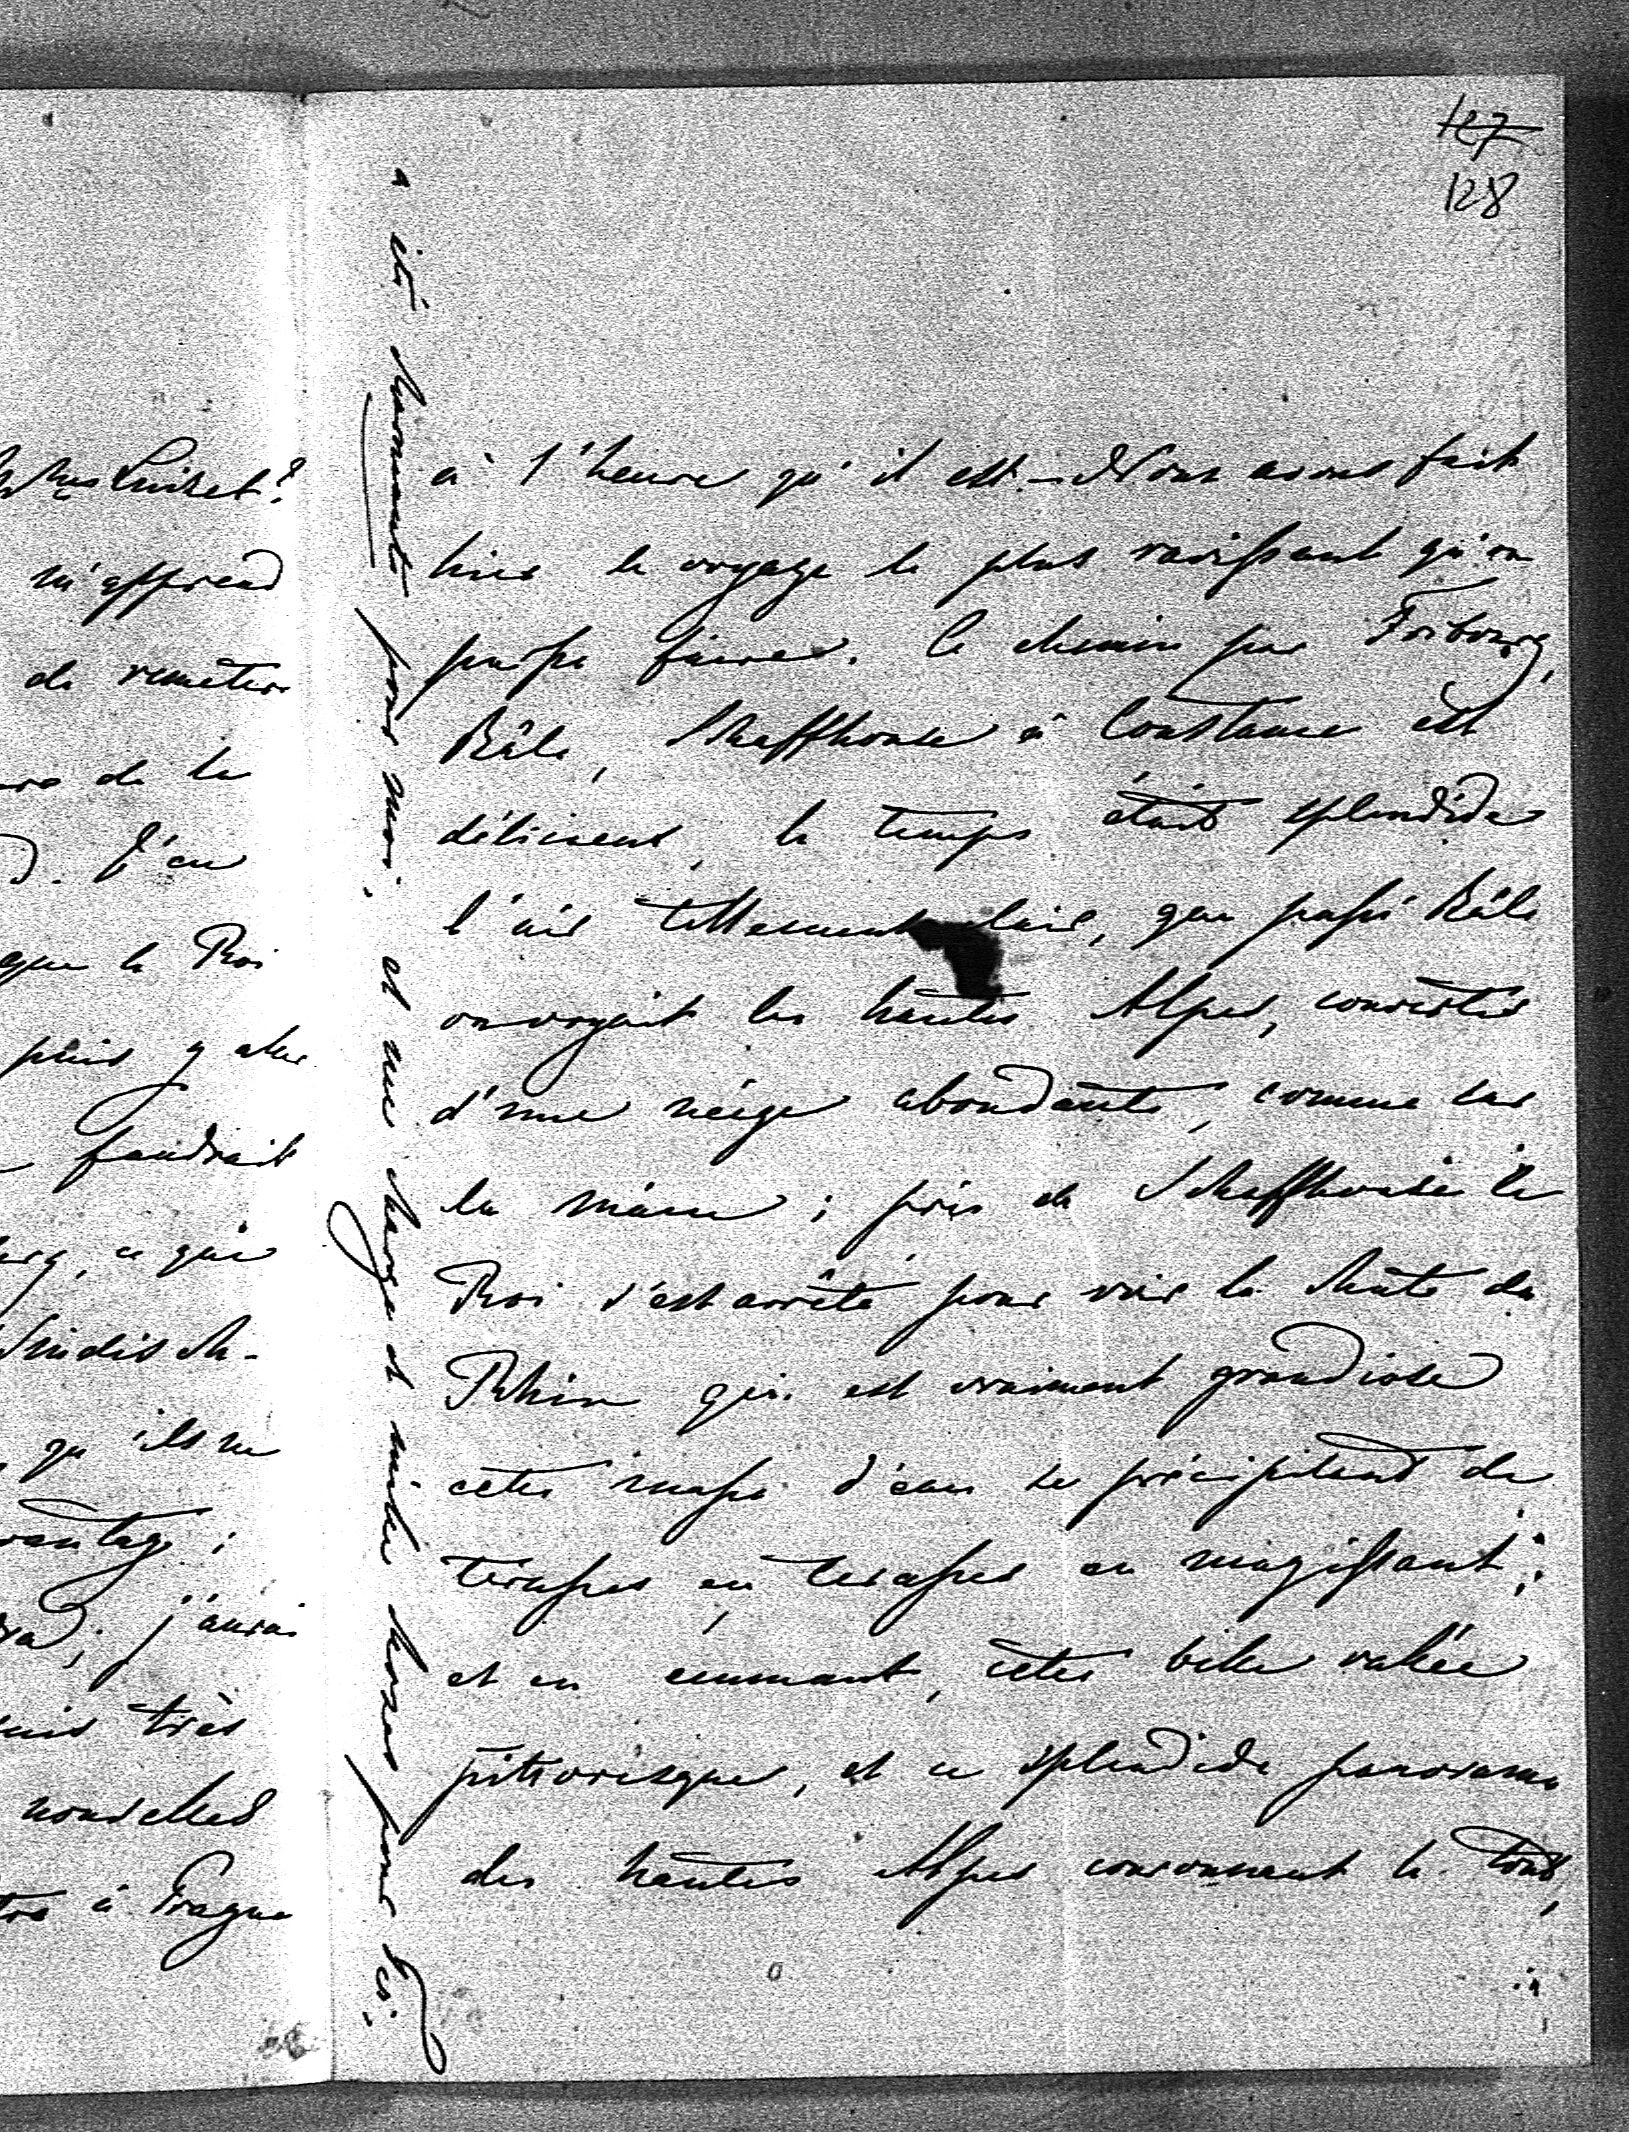 127
128
à l'heure qu'il est. – Nous avons fait
hier le voyage le plus ravissant qu'on
puisse faire. Le chemin par Fribourg,
Bâle, Schaffhouse à Constance est
délicieux, le temps était splendide
l'air tellement clair, que passé Bâle
on voyait les hautes Alpes, couvertes
d'une neige abondante, comme sur
la main ; près de Schaffhouse le
Roi s'est arrêté pour voir la chute du
Rhin qui est vraiment grandiose
cette masse d'eau se précipitant de
terasses en terasses en mugissant ;
et en écumant, cette belle vallée
pittoresque, et ce splendide panorama
des hautes Alpes couronnant le tout,
a été charmant pour moi, et me charge de mille choses pour toi.
Luiset?
m'apprend
de remettre
de la
J'en
que le Roi
puis y aller
faudrait
ce qui
Windisch-
qu'ils ne
avantage ;
j'aurai
suis très
nouvelles
à Prague